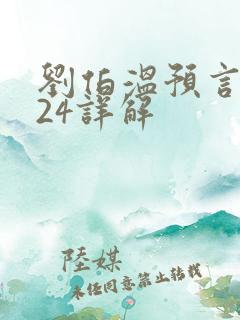 劉伯溫預言
24詳解
陸媒
未經同意禁止轉載